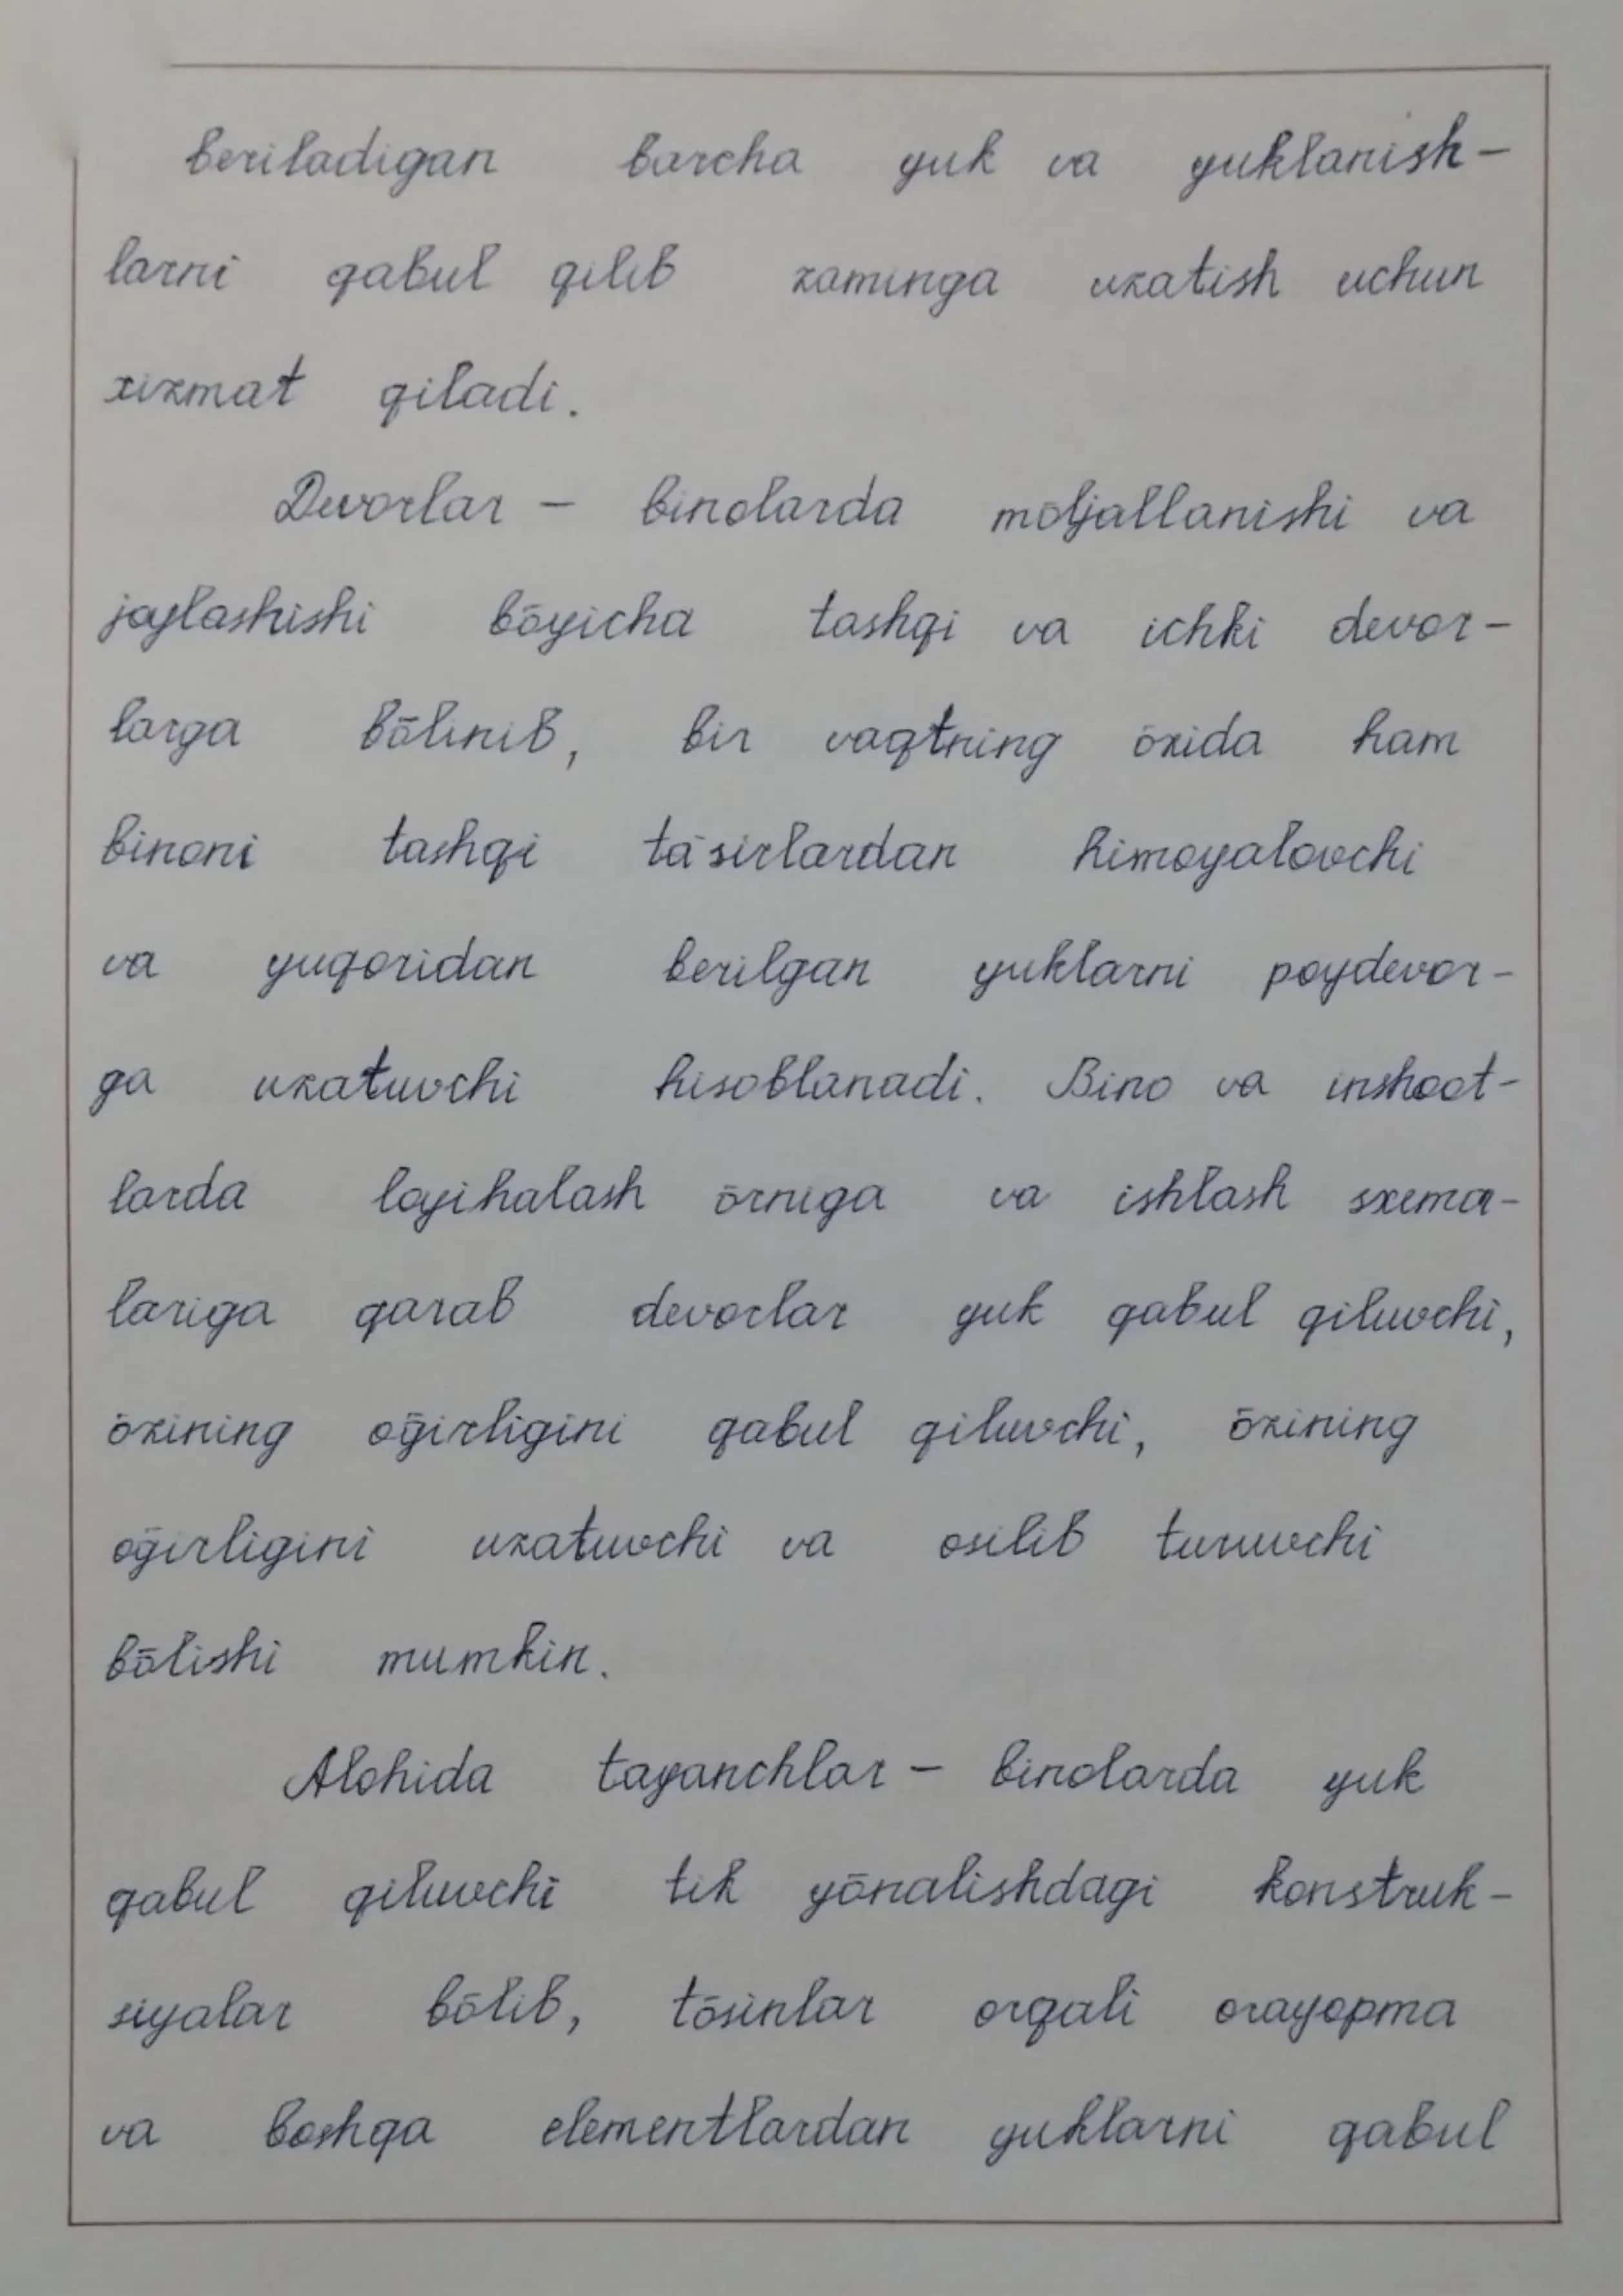 beriladigan barcha yuk va yuklanish-
larni qabul qilib zaminga uzatish uchun
xizmat qiladi.
Devorlar – binolarda mōljallanishi va
joylashishi bōyicha tashqi va ichki devor-
larga bōlinib, bir vaqtning ōzida ham
binoni tashqi ta'sirlardan himoyalovchi
va yuqoridan berilgan yuklarni poydevor-
ga uzatuvchi hisoblanadi. Bino va inshoot-
larda loyihalash ōrniga va ishlash sxema-
lariga qarab devorlar yuk qabul qiluvchi,
ōzining oḡirligini qabul qiluvchi, ōzining
oḡirligini uzatuvchi va osilib turuvchi
bōlishi mumkin.
Alohida tayanchlar – binolarda yuk
qabul qiluvchi tik yōnalishdagi konstruk-
siyalar bōlib, tōsinlar orqali orayopma
va boshqa elementlardan yuklarni qabul